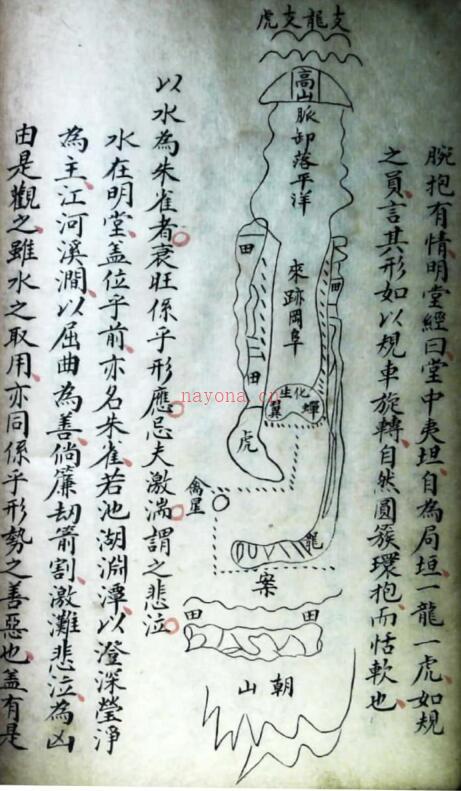 腕抱有情明堂經曰堂中夷坦自為局垣一龍一虎如規
之員言其形如以規車旋轉自然圓簇環抱而恬軟也
支龍支虎
高山
脈卸落平洋
來跡岡阜
田
田
田
化生
蟬翼
虎
龍
禽星
案
田
田
朝山
以水為朱雀者衰旺係乎形應忌夫激湍謂之悲泣
水在明堂蓋位乎前亦名朱雀若池湖淵潭以澄深瑩淨
為主江河溪澗以屈曲為善倘簾劫箭割激灘悲泣為凶
由是觀之雖水之取用亦同係乎形勢之善惡也蓋有是
nayona.cn